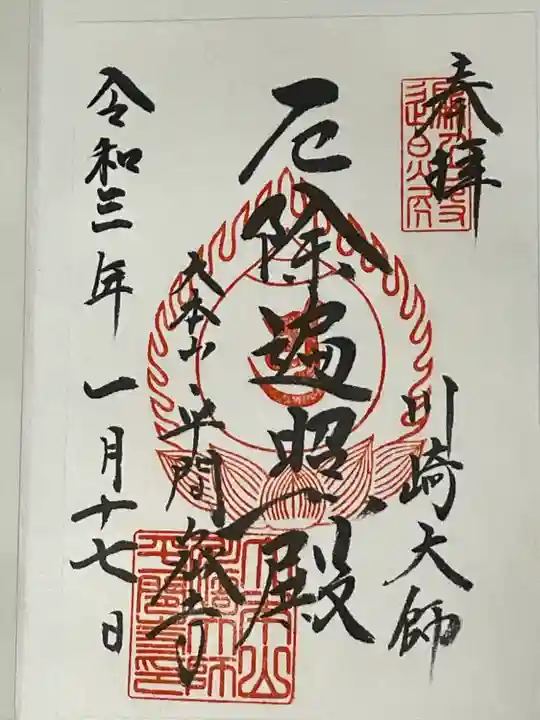 奉拝
川崎大師
厄除遍照殿
大本山
平間寺
令和三年一月十七日